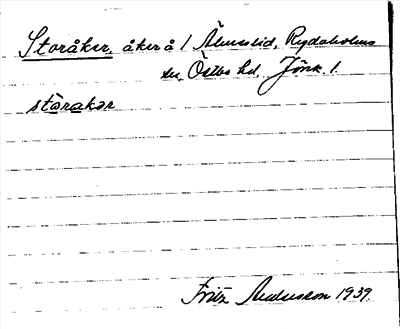 Storåker, åker å 1 Älmestid, Rydaholms
sn, Östbo hd, Jönk. l.
storakər
Fritz Andersson 1939.